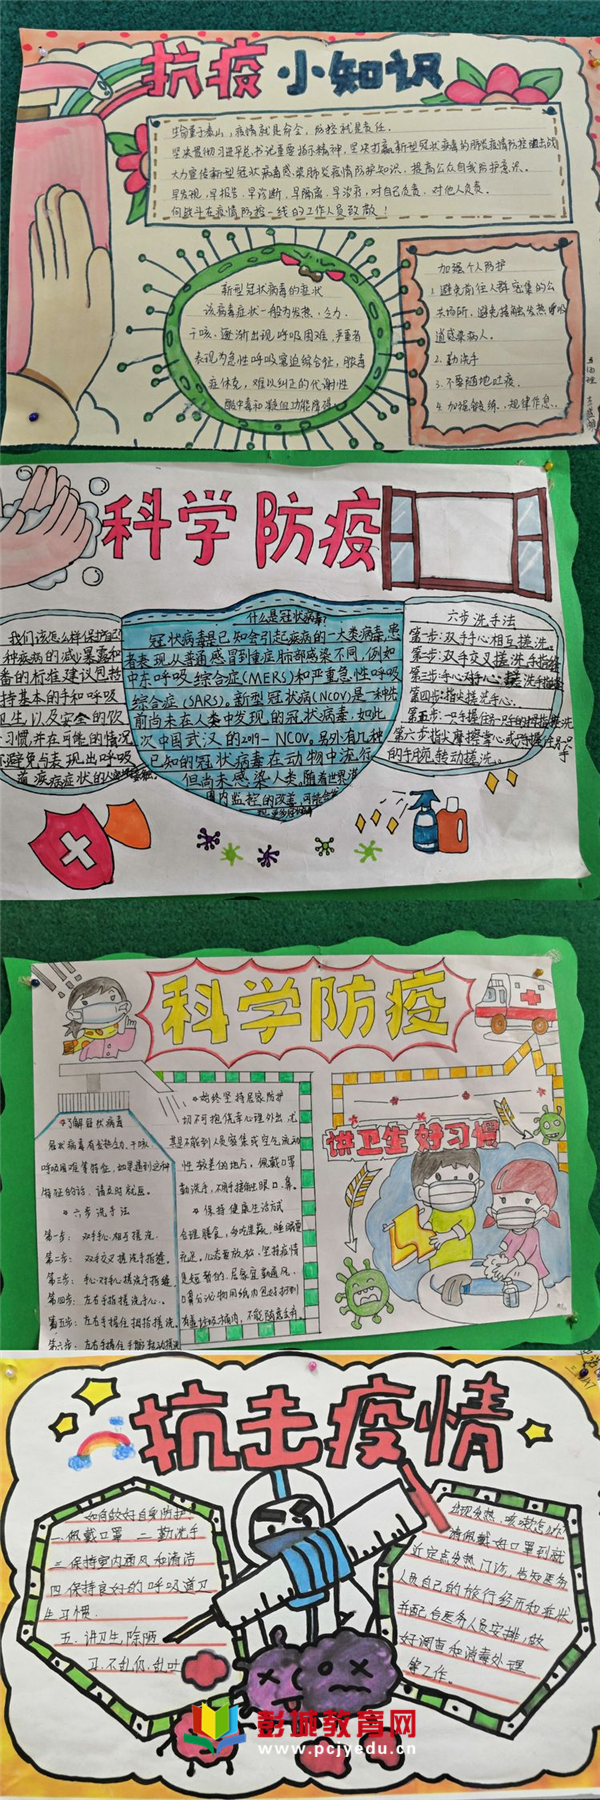 抗疫小知识
生命重于泰山，疫情就是命令，防控就是责任.
坚决贯彻习近平总书记重要指示精神，坚决打赢新型冠状病毒的肺炎疫情防控阻击战
大力宣传新型冠状病毒感染肺炎疫情防护知识，提高公众自我防护意识。
早发现，早报告，早诊断，早隔离，早治疗，对自己负责，对他人负责。
向战斗在疫情防控一线的工作人员致敬！
新型冠状病毒的症状
该病毒症状一般为发热，乏力、
干咳、逐渐出现呼吸困难，严重者
表现为急性呼吸窘迫综合征，脓毒
症休克，难以纠正的代谢性
酸中毒和凝血功能障碍
加强个人防护
1.避免前往人群密集的公
共场所，避免接触发热呼吸
道感染病人。
2.勤洗手
3.不要随地吐痰.
4.加强锻练、规律作息.
科学防疫
我们该怎么样保护自己
种疾病的减少暴露和
备的标准建议包括
持基本的手和呼吸
卫生，以及安全的饮
习惯，并在可能的情况
避免与表现出呼吸
道疾病症状的人
什么是冠状病毒?
冠状病毒是已知会引起疾病的一大类病毒,患
者表现从普通感冒到重症肺部感染不同,例如
中东呼吸综合症(MERS)和严重急性呼吸
综合症(SARS)。新型冠状病(NCOV)是一种先
前尚未在人类中发现的冠状病毒,如此
次中国武汉的2019-NCOV。另外有几种
已知的冠状病毒在动物中流行
但尚未感染人类。随着世界
国内监控的改善,可能会
六步洗手法
第一步:双手手心相互搓洗。
第二步:双手交叉搓洗手指缝
第三步:手心对手心搓洗手
第四步:指尖搓洗手心.
第六步:指尖摩擦掌心或
的手腕,转动搓洗。
科学防疫
了解冠状病毒
冠状病毒有发热乏力、干咳
呼吸困难等症症,如果遇到这种
特征的话，请立时就医。
六步洗手法
第一步： 双手手心相互搓洗.
第二步： 双手交叉搓洗手指缝
第三步： 手心对手心搓洗手指缝
第四步： 左右手指搓洗手心.
第五步： 左右手握住拇指搓洗.
始终坚持居家防护
切不可抱侥幸心理外出,尤
其是不能到人员密集或空气流动
性较差的地方，佩戴口罩
勤洗手,不用手接触眼口鼻。
保持健康生活方式
合理膳食,
充足,心态要放松,坚持疫情
讲卫生 好习惯
抗击疫情
如何做好自我防护?
一.佩戴口罩 二勤洗手
三保持室内通风和清洁
四保持良好的呼吸道卫
生习惯.
五、讲卫生,除陋
习,不乱仍,乱吐
出现发热,咳嗽怎么办
请佩戴好口罩到就
近定点发热门诊,告知医务
人员自己的旅行经历和症状
并配合医务人员安排,做
好调查和消毒处理
等工作。
彭城教育网
www.pcjyedu.cn